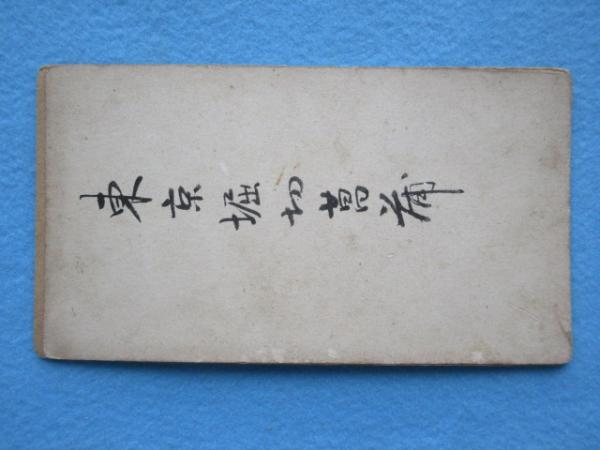 東京堀切菖蒲